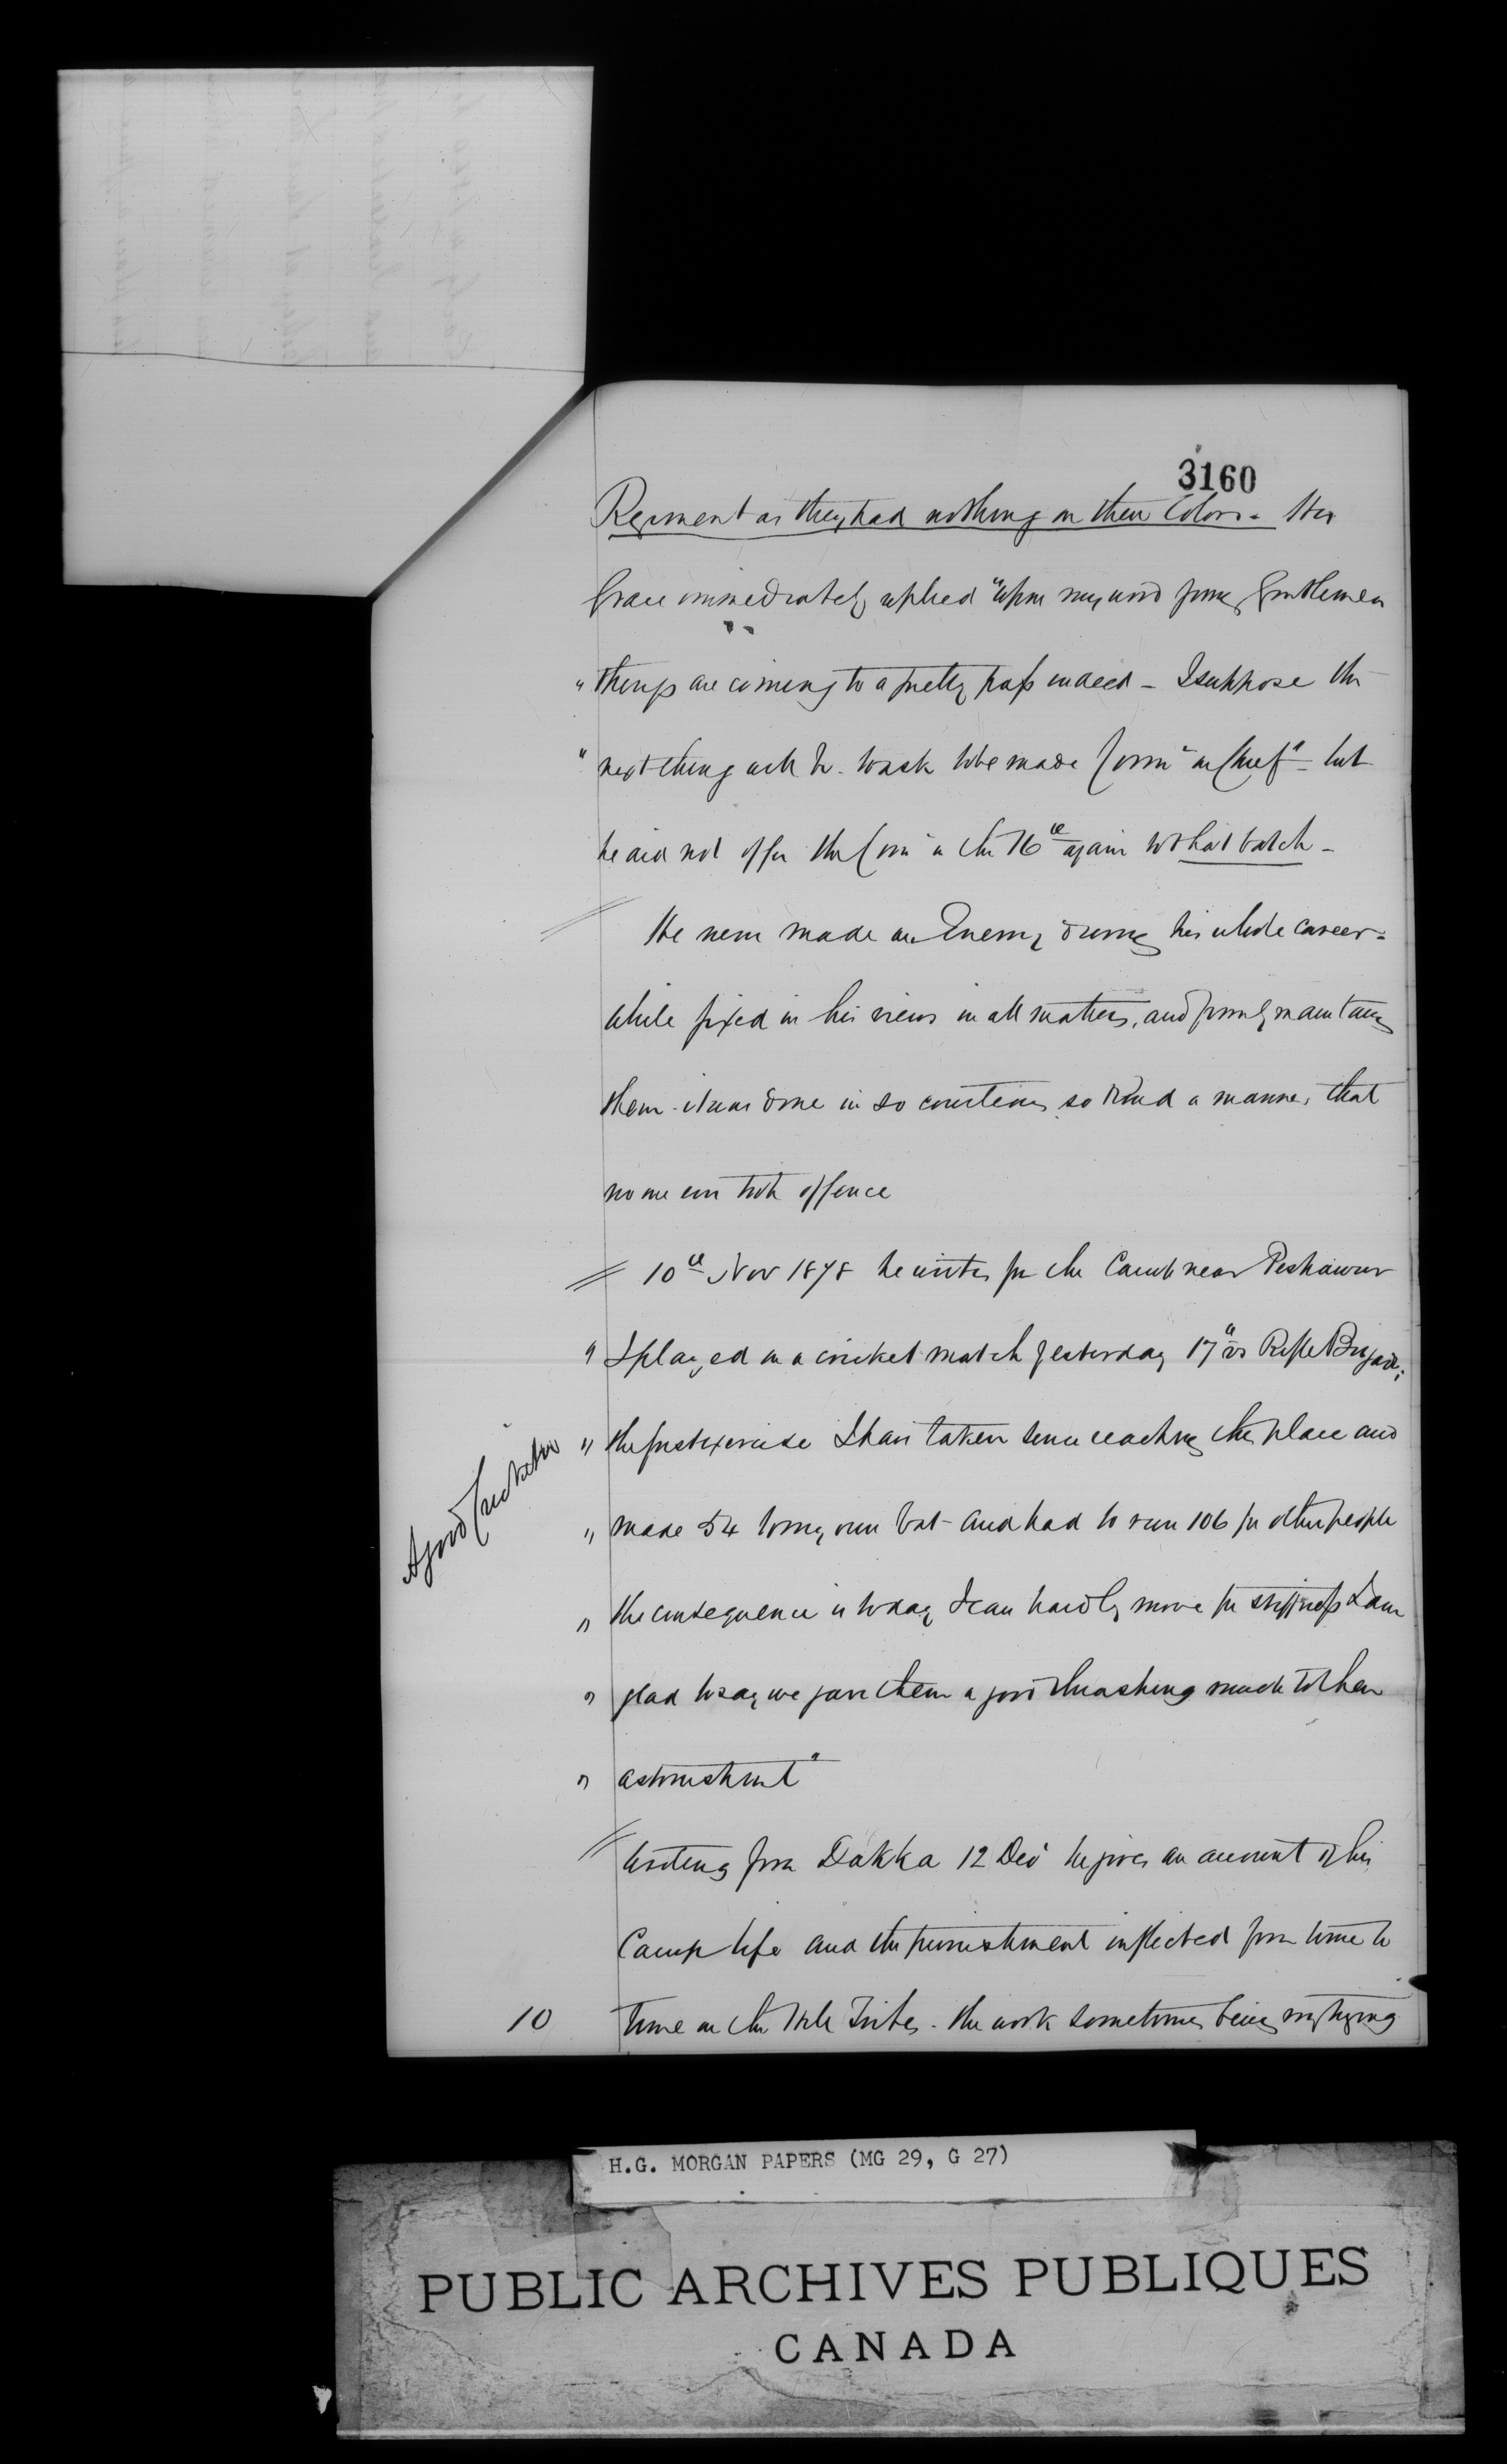 3160
Regiment as they had nothing on their Colors. His
Grace immediately replied "Upon my word young Gentlemen
" things are coming to a pretty pass indeed - I suppose the
" next thing will be to ask to be made Comr in Chief" - but
he did not offer the Comn in the 76th again to that batch -
He never made an Enemy during his whole career -
while fixed in his views in all matters, and firmly maintaing
them it was done in so courteous so kind a manner, that
no one ever took offence
10th Nov 1878 he writes fm the Camp near Peshawur
" I played in a cricket match yesterday 17th vs Rifle Brigade;
" the first exercise I have taken since reaching this place and
" made 54 to my own bat and had to run 106 for other people
" the consequence is today I can hardly move for stiffness I am
" glad to say we gave them a good thrashing much to their
" astonishment"
A good Cricketer
Writing from Dakka 12 Decr he gives an account of his
Camp life and the punishment inflicted from time to
10 time on the Hill Tribes - the work sometimes being very trying
H.G. MORGAN PAPERS (MG 29, G 27)
PUBLIC ARCHIVES PUBLIQUES
CANADA